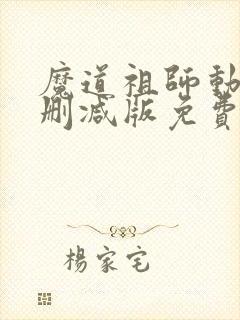 魔道祖師動
刪減版免費
楊家宅